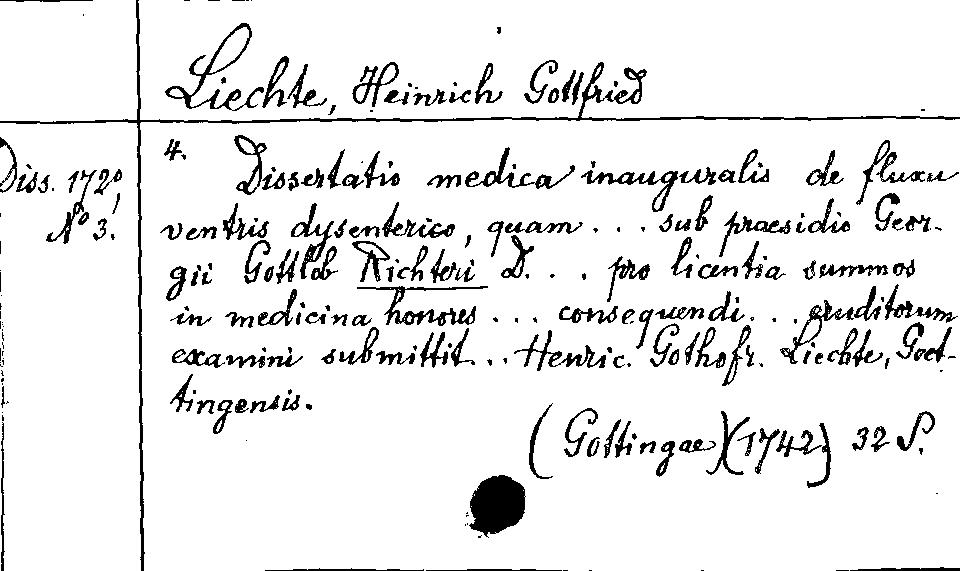 Liechte, Heinrich Gottfried
Diss. 1720,
No 3.
4. Dissertatio medica inauguralis de fluxu
ventris dysenterico, quam . . . sub praesidio Geor-
gii Gottlob Richteri D. . . . pro licentia summos
in medicina honores . . . consequendi . . . eruditorum
examini submittit . . Henric. Gothofr. Liechte, Goet-
tingensis.
(Gottingae)(1742) 32 S.